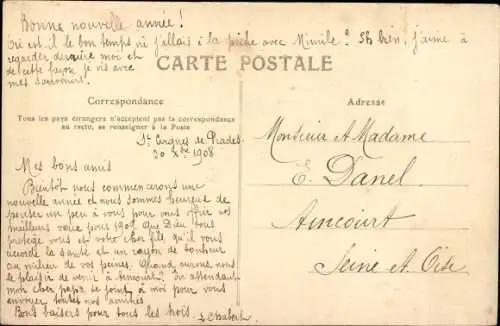 Bonne nouvelle année !
Où est-il le bon temps où j'allais à la pêche avec Mimile ? Eh bien, j'aime à
regarder derrière moi et
de cette façon je vis avec
mes souvenirs.
CARTE POSTALE
Correspondance
Tous les pays étrangers n'acceptent pas la correspondance
au recto, se renseigner à la Poste
St Cirgues de Prades
30 Xbre 1908
Mes bons amis
Bientôt nous commencerons une
nouvelle année et nous sommes heureuse de
penser un peu à vous pour vous offrir nos
meilleurs vœux pour 1909 que Dieu vous
protège vous et votre cher fils, qu'il vous
accorde la santé et un rayon de bonheur
au milieu de vos peines. Quand aurons nous
le plaisir de venir à Aincourt ! En attendant
mon cher papa se joint à moi pour vous
envoyer toutes nos amitiés
Bons baisers pour tous les trois.
Chabert
Adresse
Monsieur et Madame
E. Danel
Aincourt
Seine et Oise